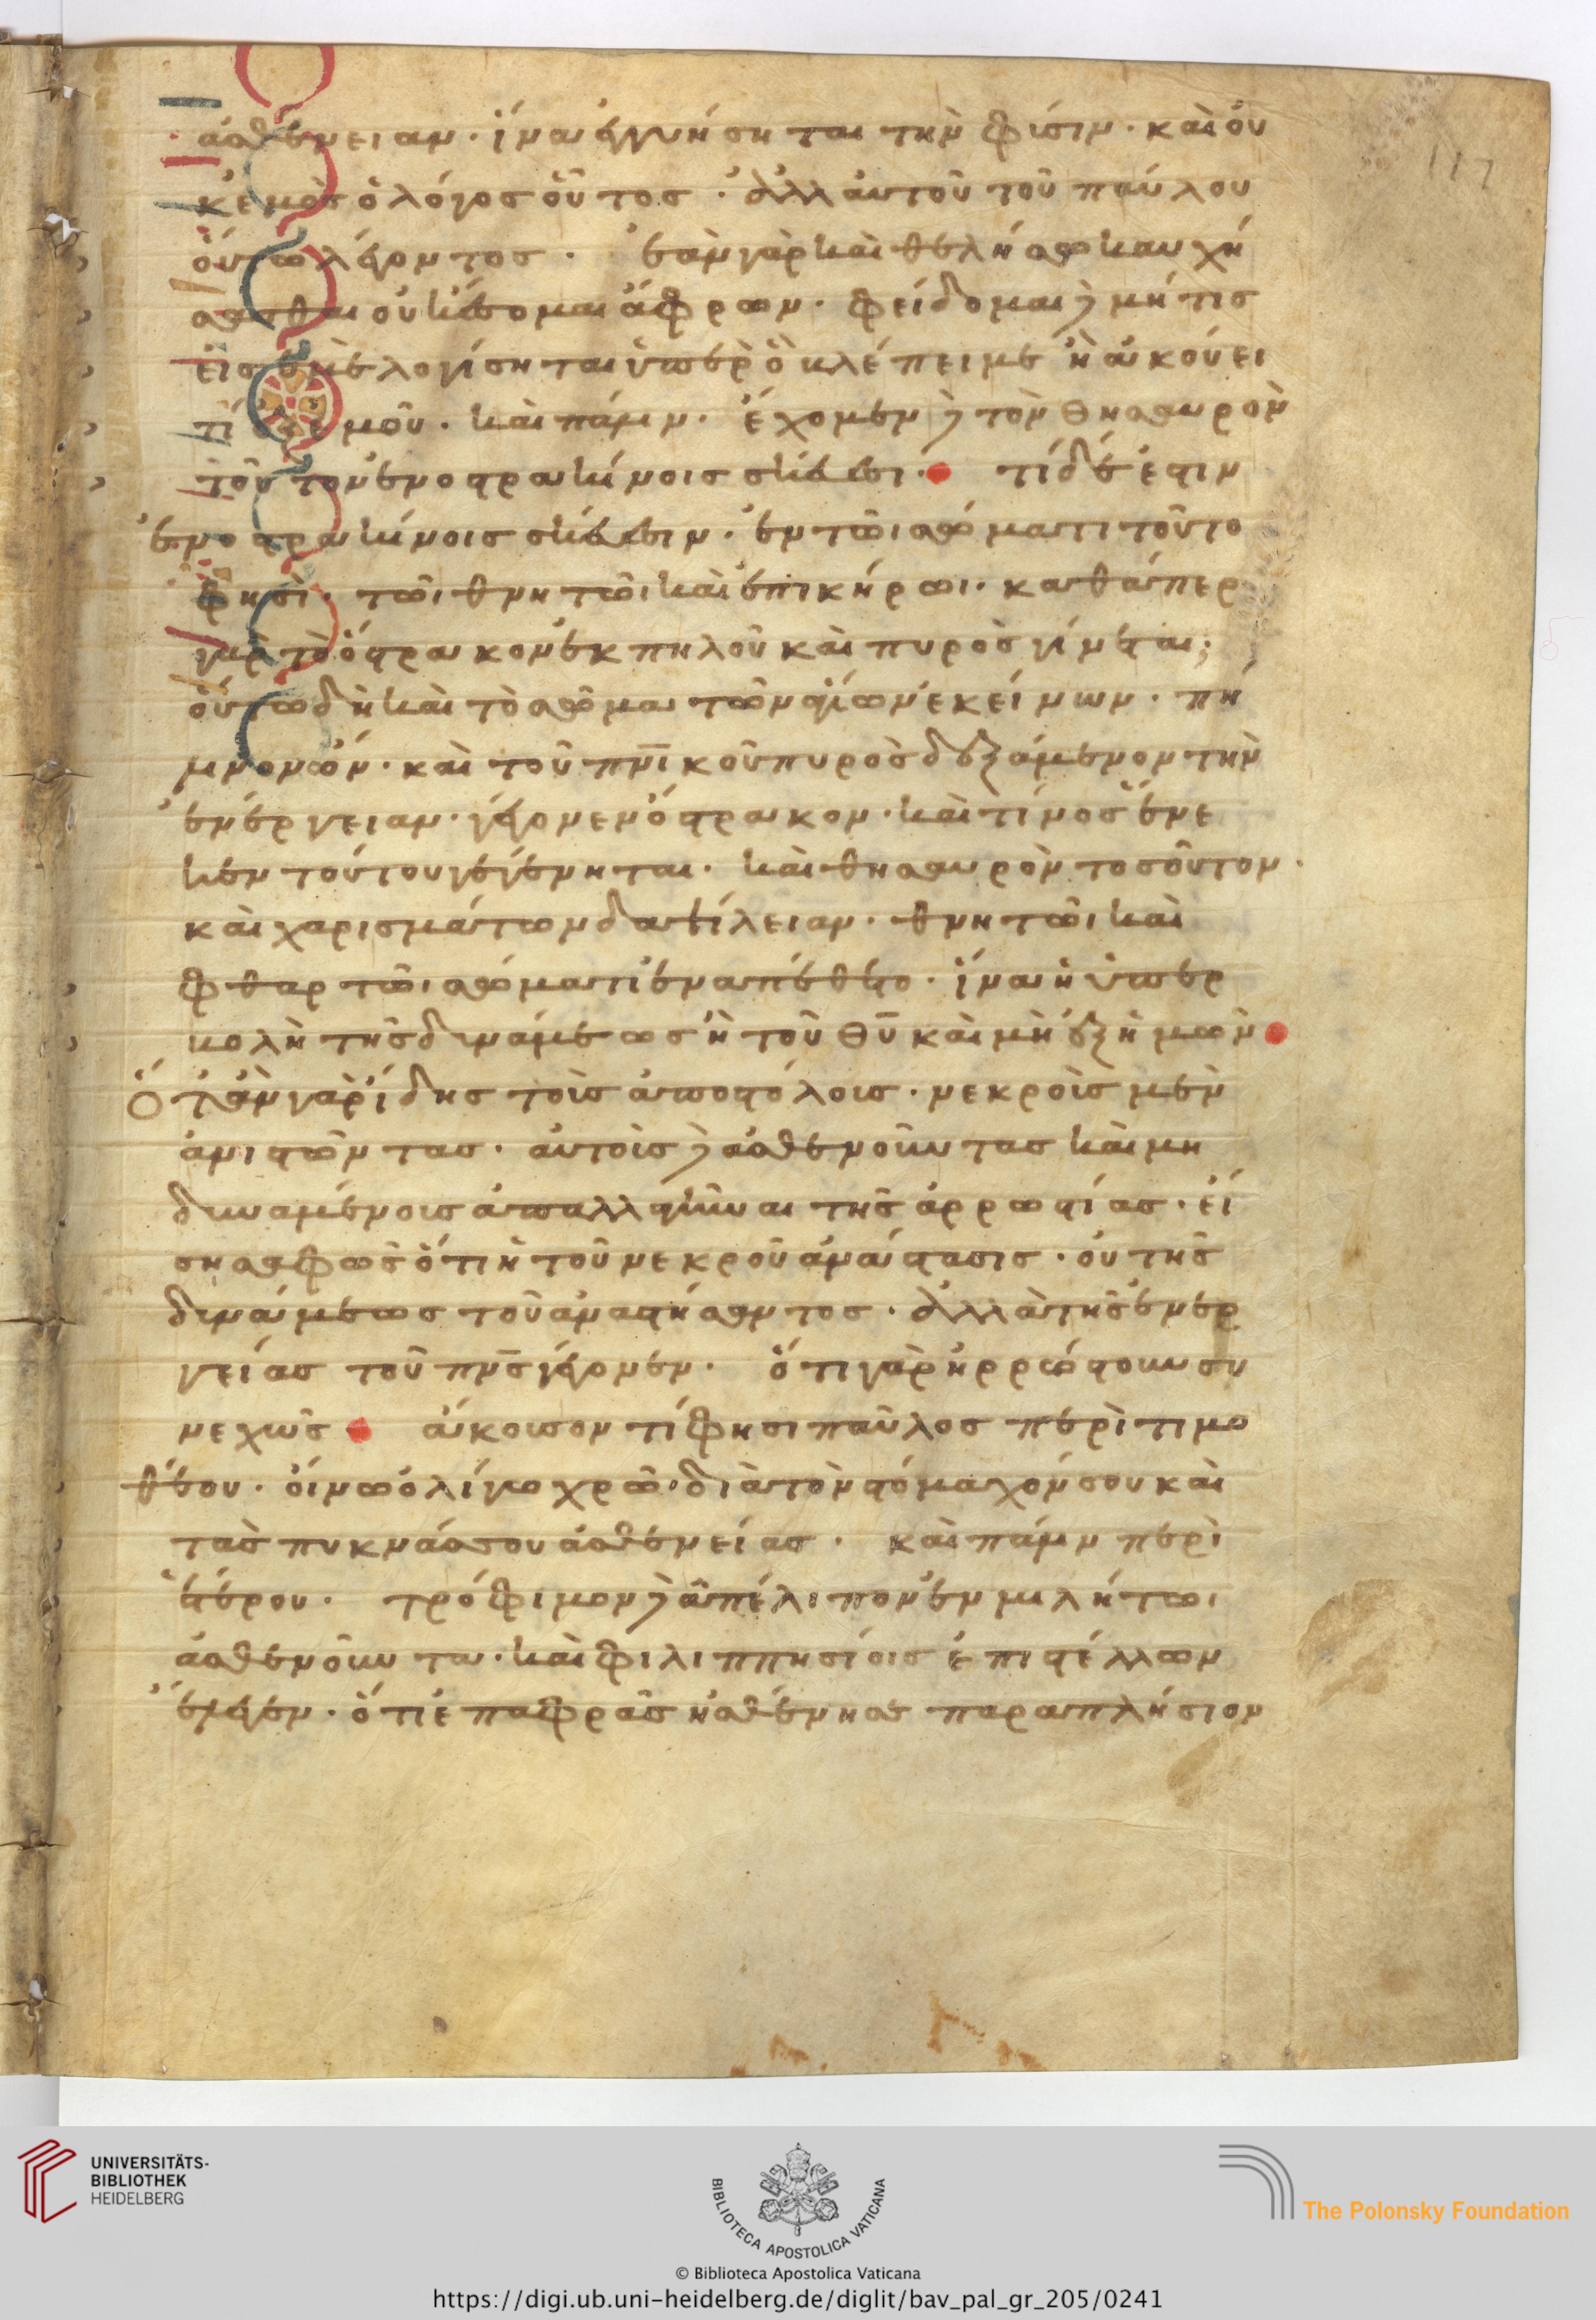 117
ἀσθένειαν· ἵνα ἐγγυήσηται τὴν φύσιν· καὶ οὐ
κ ἐμὸς ὁ λόγος οὗτος· ἀλλ αὐτοῦ τοῦ παύλου
οὕτω λέγοντος· ἐὰν γὰρ καὶ θελήσω καυχή
σασθαι οὐκ ἔσομαι ἄφρων· φείδομαι δὲ μή τις
εἰς ἐμὲ λογίσηται ὑπὲρ ὃ βλέπει με ἢ ἀκούει
τί ἐξ ἐμοῦ· καὶ πάλιν· ἔχομεν δὲ τὸν θησαυρὸν
τοῦτον ἐν ὀστρακίνοις σκεύεσι· τί δέ ἐστιν
ἐν ὀστρακίνοις σκεύεσιν· ἐν τῶι σώματι τούτο
φησὶ· τῶι θνητῶι καὶ ἐπικήρωι· καθάπερ
γὰρ τὸ ὄστρακον ἐκ πηλοῦ καὶ πυρὸς γίνεται;
οὕτω δὴ καὶ τὸ σῶμα τῶν ἁγίων ἐκείνων· πή
λινον ὂν· καὶ τοῦ πνϊκοῦ πυρὸς δεξάμενον τὴν
ἐνέργειαν· γέγονεν ὄστρακον· καὶ τίνος ἕνε
κεν τούτου γεγένηται· καὶ θησαυρὸν τοσοῦτον·
καὶ χαρισμάτων δαψίλειαν· θνητῶι καὶ
φθαρτῶι σώματι ἐναπέθετο· ἵνα ἡ ὑπερ
βολὴ τῆς δυνάμεως ἦ τοῦ θυ καὶ μὴ ἐξ ἡμῶν
Ὅταν γὰρ ἴδης τοὺς ἀποστόλους· νεκροὺς μὲν
ἀνιστῶντας· αὐτοὺς δὲ ἀσθενοῦντας καὶ μὴ
δυναμένους ἀπαλλαγῆναι τῆς ἀρρωστίας· εἴ
ση σαφῶς ὅτι ἡ τοῦ νεκροῦ ἀνάστασις· οὐ τῆς
δυνάμεως τοῦ ἀναστήσαντος· ἀλλὰ τῆς ἐνερ
γείας τοῦ πνς γέγονεν· ὅτι γὰρ ἠρρώστουν συ
νεχῶς ἄκουσον τί φησι παῦλος περὶ τιμο
θέου· οἴνω ὀλίγω χρῶ· διὰ τὸν στόμαχόν σου καὶ
τὰς πυκνάς σου ἀσθενείας· καὶ πάλιν περὶ
ἑτέρου· τρόφιμον δὲ ἀπέλιπον ἐν μιλήτωι
ἀσθενοῦντα· καὶ φιλιππησίοις ἐπιστέλλων
ἔλεγεν· ὅτι ἐπαφρᾶς ἠσθένησε παραπλήσιον
UNIVERSITÄTS-
BIBLIOTHEK
HEIDELBERG
BIBLIOTECA APOSTOLICA VATICANA
The Polonsky Foundation
© Biblioteca Apostolica Vaticana
https://digi.ub.uni-heidelberg.de/diglit/bav_pal_gr_205/0241